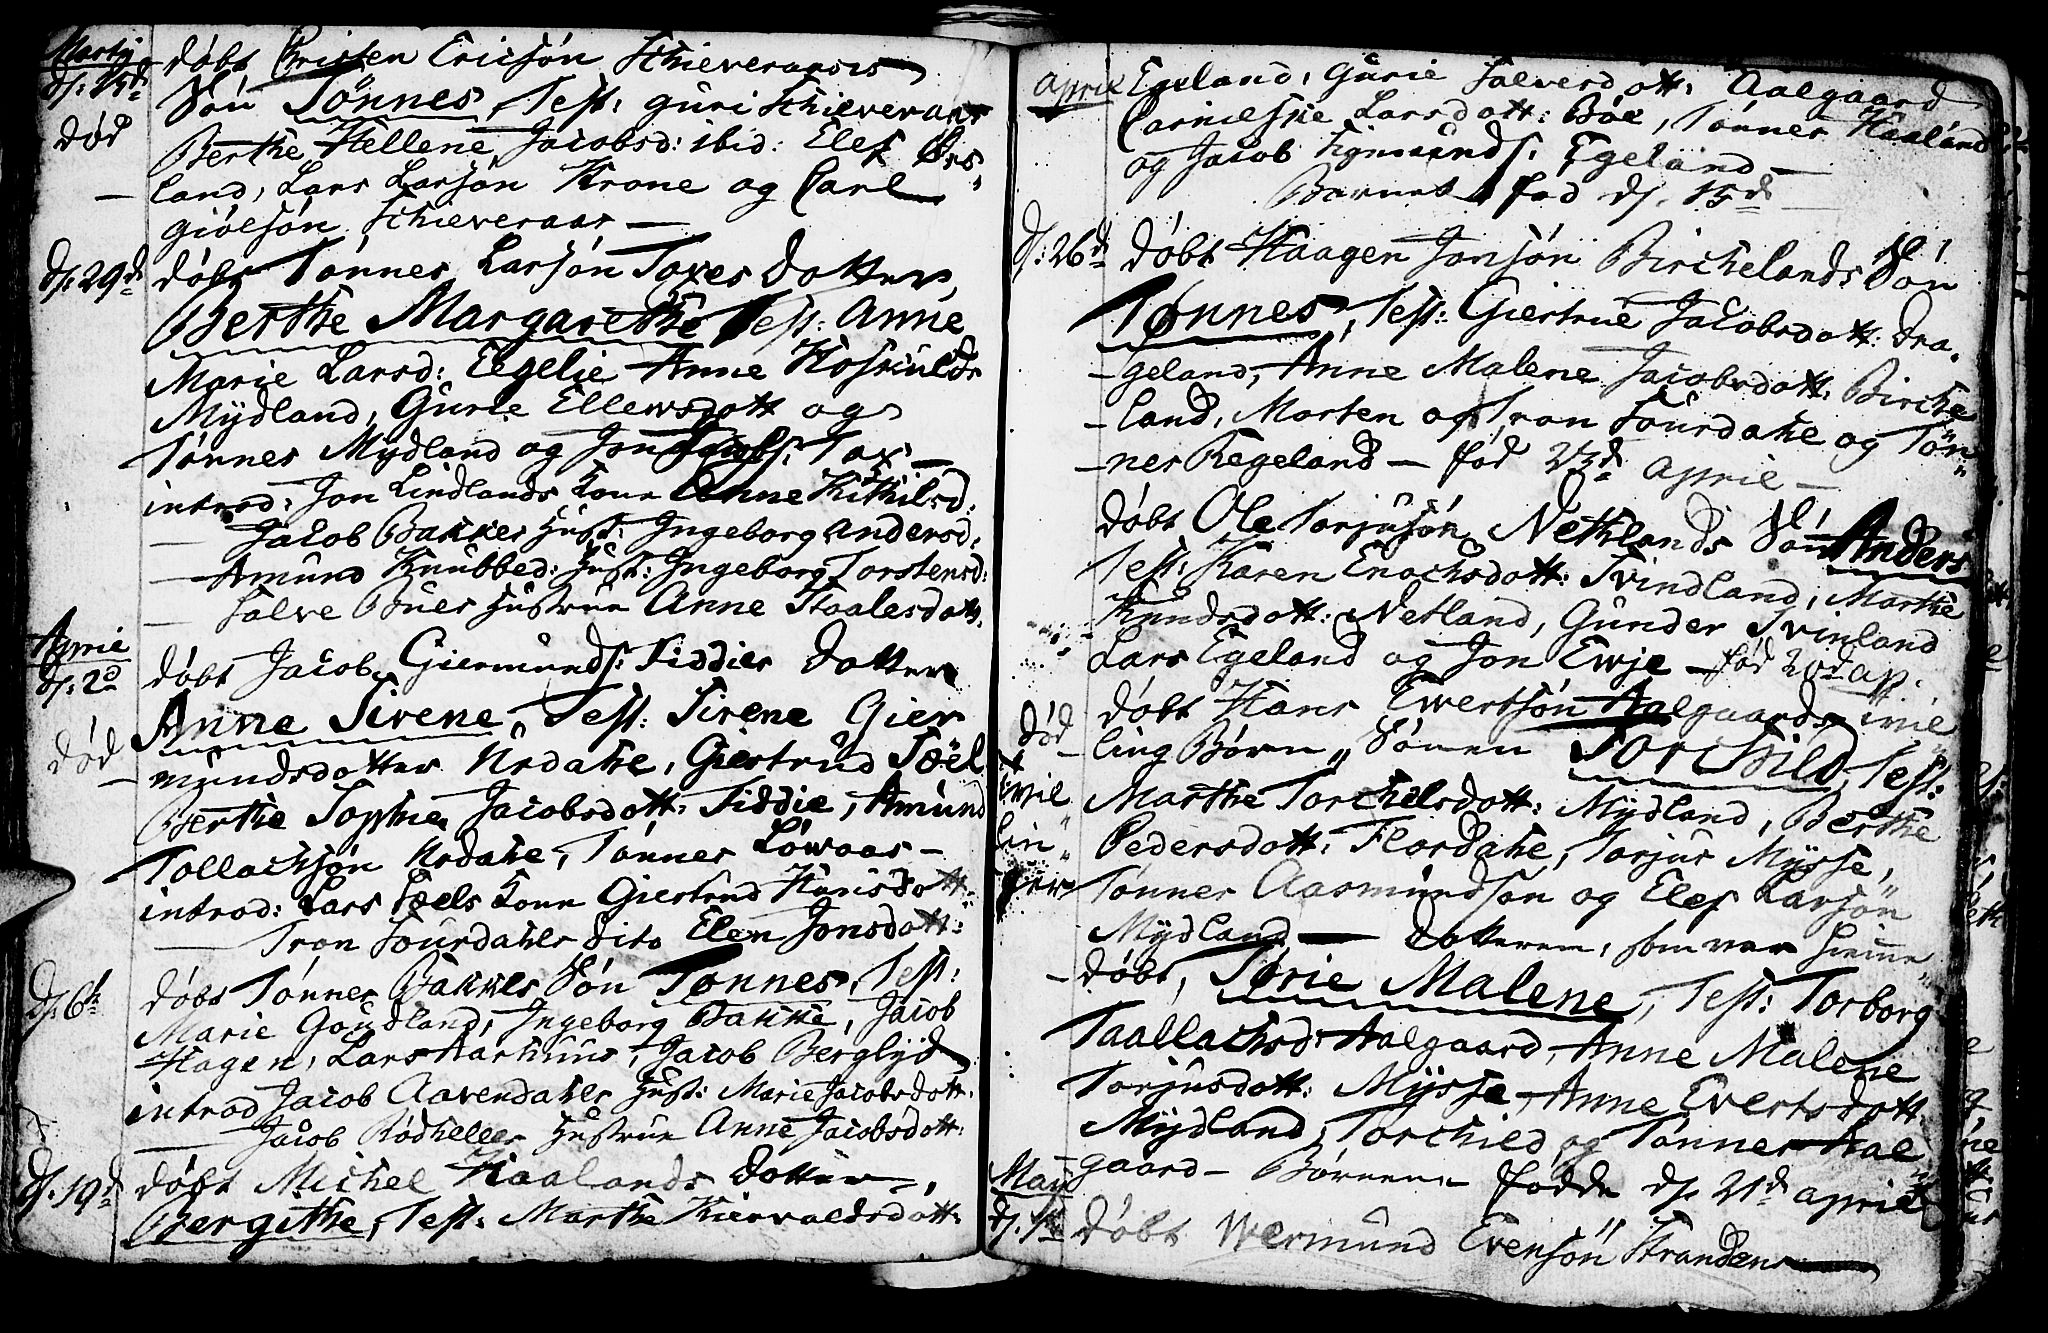 Martij
d. 15d døbt Christen Ericsøn Schieveraasis
Søn Tønnes, Test: Guri Schieveraas
død
Berthe Hellene Jacobsd: ibid: Elef Ørs„
land, Lars Larsøn Krone og Carl
giölsøn Schieveraas —
d: 29d døbt Tønnes Larsøn Toxes Dotter
Berthe Margarethe Test: Anne
Marie Larsd: Eegelie Anne Hoskulds
Mÿdland, Gurie Ellewsdott og
Tønnes Mydland og Jon Jacobs: Tox —
introd: Jon Lindlands Kone Anne Kithilsd:
— Jacob Bakkes Hust: Ingeborg Andersd:
— Amund Knubbed: Hust: Ingeborg Torstensd:
— Salve Bues Hustrue Anne Staalesdott.
Aprie
d: 2d døbt Jacob Giermunds: Fiddies Dotter
Anne Sirene, Test: Sirene Gier
død
mundsdotter Urdahe, Giertrud Sæel
Berthe Sophie Jacobsdott: Fiddie, Amund
Tollachsøn Urdahe, Tønnes Løwaas —
introd: Lars Sæels Kone Giertrud Hansdott:
— Tron Sourdahes dito Elen Jonsdott:
d: 6t døbt Tønnes Bakkes Søn Tønnes, Test:
Marie Goudland, Ingeborg Bakke, Jacob
Hagen, Lars Aarhuus, Jacob Berglyd
introd Jacob Aavendahes Hust: Marie Jacobsdott.
— Jacob Rødhelles Hustrue Anne Jacobsdott:
d. 19d døbt Michel Haalands Dotter,
Bergithe, Test: Marthe Kiervaldsdott:
Aprie Egeland, Gurie Salvesdott: Aalgaard
Carnielske Larsdott: Bøe, Tønnes Haaland
og Jacob Sigmunds: Egeland —
Barnet fød d. 15d
d: 26d døbt Haagen Jonsøn Birchelands Søn
Tønnes, Test: Giertrue Jacobsdott: Dra„
-geland, Anne Malene Jacobsdott: Birche
-land, Morten og Tron Sourdahe og Tøn„
-nes Regeland — fød 23d Aprie —
døbt Ole Torjusøn Nethlands Søn Anders
Test: Karen Enochsdott: Svindland, Marthe
Knudsdott: Netland, Gunder Svinland
Lars Egeland og Jon Ewje — fød 20d Ap.
døbt Hans Ewertsøn Aalgaards tvil
død
ling Børn „ Sønen Torchild, Test:
tvil„
Marthe Torchelsdott: Mydland, Berthe
lin„
Pedersdott: Flordahe, Torjus Mÿsse,
ger
Tønnes Aasmundsøn og Elef Larsøn
Mÿdland — Dotteren, som var hieme„
-døbt, Torie Malene, Test: Torborg
Taallachsd: Aalgaard, Anne Malene
Torjusdott: Mÿsse, Anne Evertsdott
Mÿdland, Torchild og Tønnes Aal
gaard — Børnene fødde d. 21d Aprie
Maij
d. 1t døbt Wermund Evensøn Strandens —